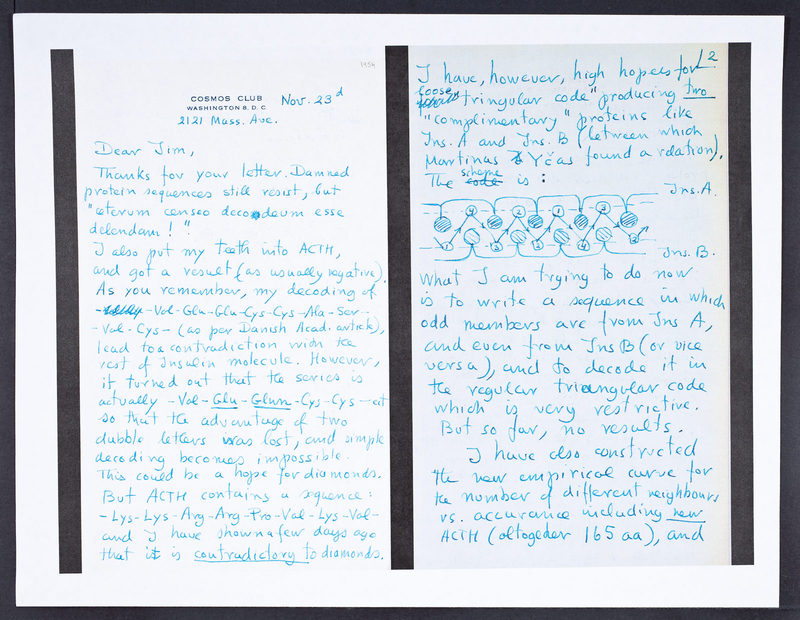 1954
COSMOS CLUB
WASHINGTON 8, D. C.
Nov. 23d
2121 Mass. Ave.
Dear Jim,
Thanks for your letter. Damned
protein sequences still resist, but
"ceterum censeo decodeum esse
delendam!"
I also put my teeth into ACTH,
and got a result (as usually negative).
As you remember, my decoding of
-Val-Glu-Glu-Cys-Cys-Ala-Ser-
-Val-Cys- (as per Danish Acad. article),
lead to a contradiction with the
rest of Insulin molecule. However,
it turned out that the series is
actually -Val-Glu-Glun-Cys-Cys-ect
so that the advantage of two
dubble letters was lost, and simple
decoding becomes impossible.
This could be a hope for diamonds.
But ACTH contains a squence:
-Lys-Lys-Arg-Arg-Pro-Val-Lys-Val-
and I have shown a few days ago
that it is contradictory to diamonds.
2
I have, however, high hopes for
loose
"tringular code" producing two
"complimentary" proteins like
Ins. A and Ins. B (between which
Martinas Yčas found a relation).
scheme
The code is :
Ins. A.
Ins. B.
What I am trying to do now
is to write a sequence in which
odd members are from Ins A,
and even from Ins B (or vice
versa), and to decode it in
the regular triangular code
which is very restrictive.
But so far, no results.
I have also constructed
the new empirical curve for
the number of different neighbours
vs. accurance including new
ACTH (altogeder 165 aa), and